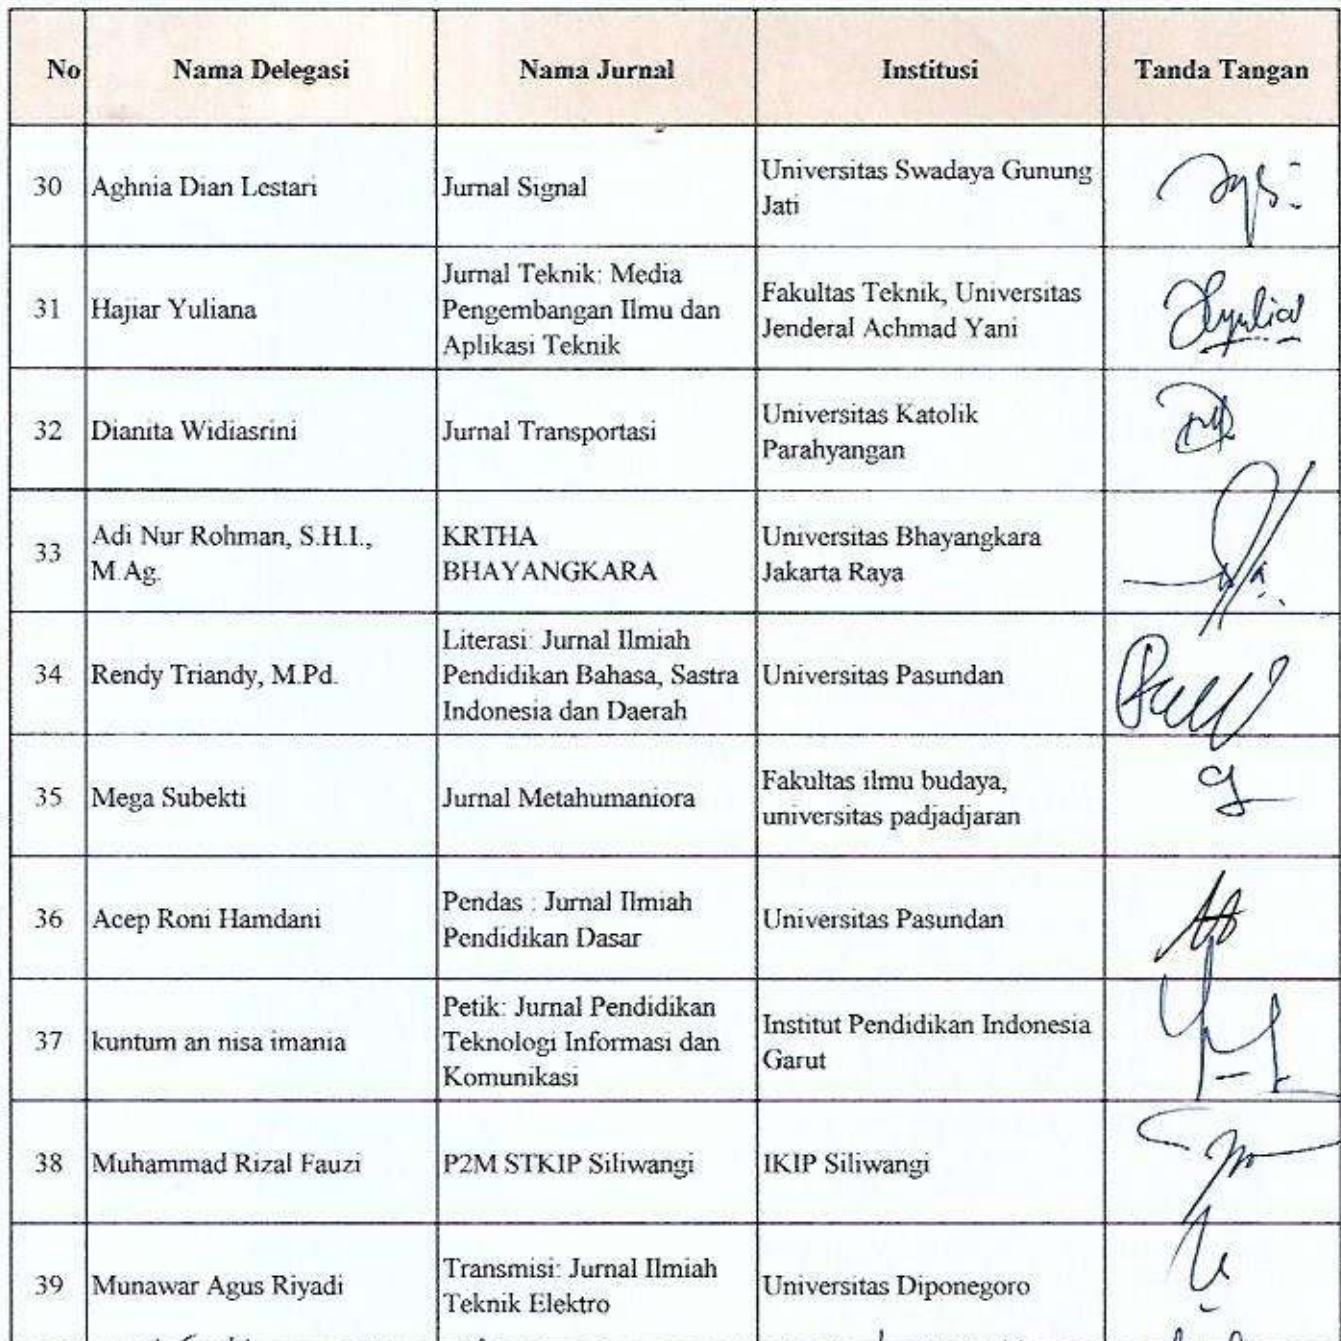 No Nama Delegasi Nama Jurnal Institusi Tanda Tangan
30 Aghnia Dian Lestari Jurnal Signal Universitas Swadaya Gunung
Jati
31 Hajiar Yuliana Jurnal Teknik: Media
Pengembangan Ilmu dan
Aplikasi Teknik
Fakultas Teknik, Universitas
Jenderal Achmad Yani
32 Dianita Widiasrini Jurnal Transportasi Universitas Katolik
Parahyangan
33 Adi Nur Rohman, S.H.I.,
M.Ag.
KRTHA
BHAYANGKARA
Universitas Bhayangkara
Jakarta Raya
34 Rendy Triandy, M.Pd. Literasi: Jurnal Ilmiah
Pendidikan Bahasa, Sastra
Indonesia dan Daerah
Universitas Pasundan
35 Mega Subekti Jurnal Metahumaniora Fakultas ilmu budaya,
universitas padjadjaran
36 Acep Roni Hamdani Pendas : Jurnal Ilmiah
Pendidikan Dasar
Universitas Pasundan
37 kuntum an nisa imania Petik: Jurnal Pendidikan
Teknologi Informasi dan
Komunikasi
Institut Pendidikan Indonesia
Garut
38 Muhammad Rizal Fauzi P2M STKIP Siliwangi IKIP Siliwangi
39 Munawar Agus Riyadi Transmisi: Jurnal Ilmiah
Teknik Elektro
Universitas Diponegoro